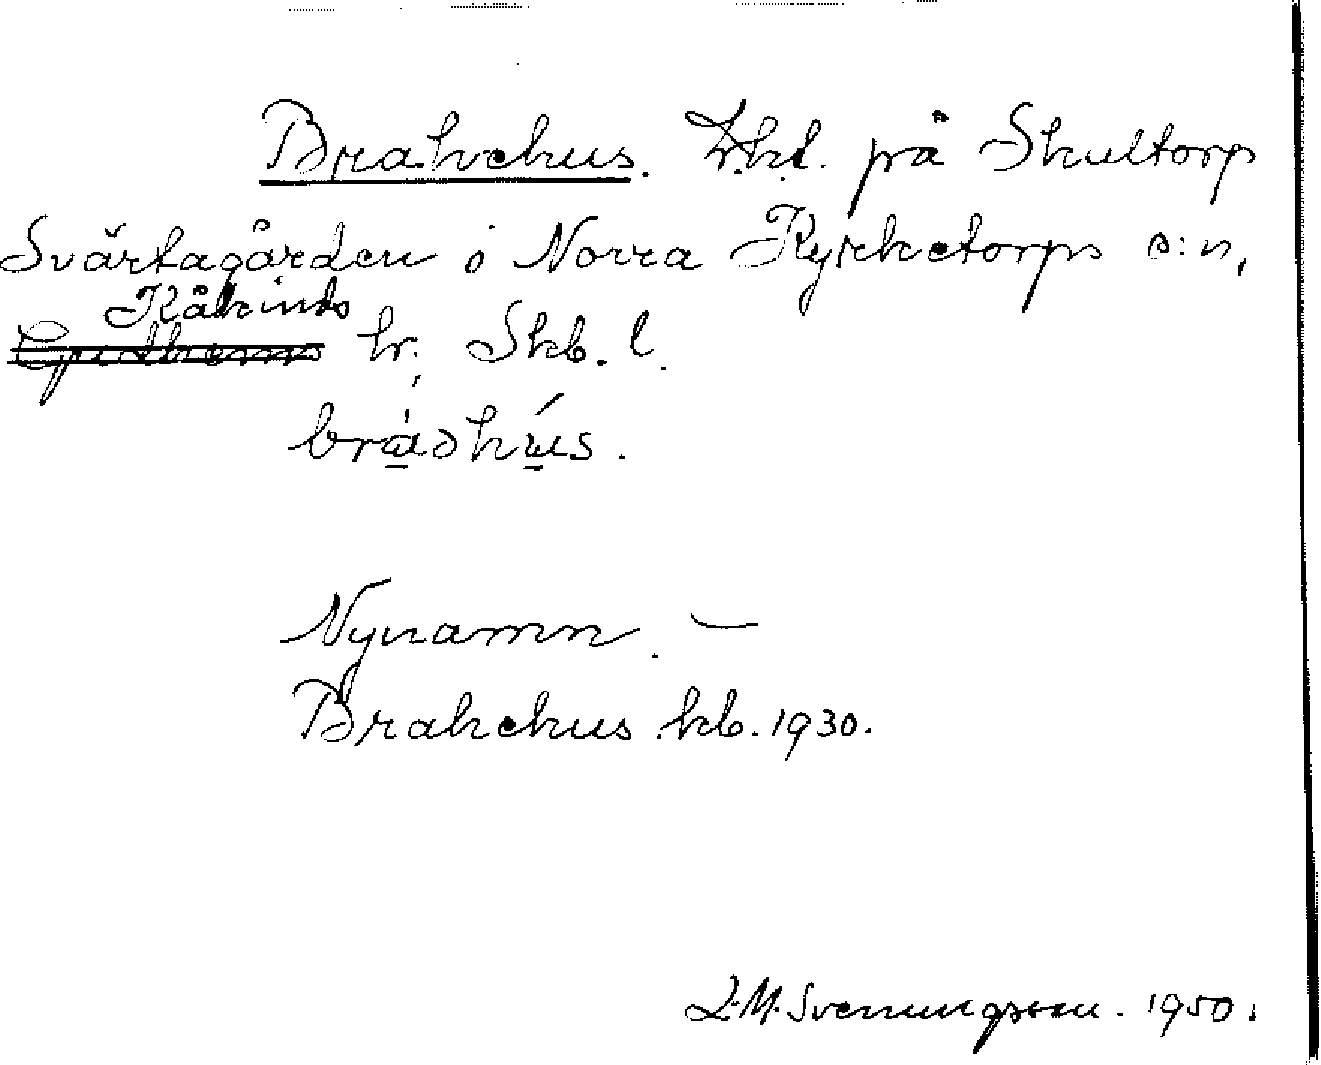 Brahehus. Lht. på Skultorp
Svärtagården i Norra Kyrketorps s:n,
Kåkinds
hr. Skb. l.
bráǝhús.
Nynamn. —
Brahehus kb. 1930.
L.M. Svenungsson. 1950.